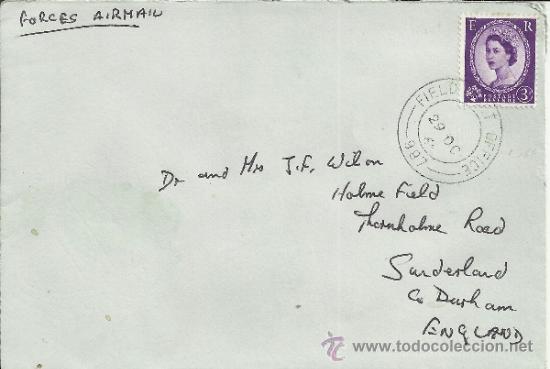 FORCES AIRMAIL
E R
POSTAGE
REVENUE
3D
FIELD POST OFFICE
29 OC
Dr and Mrs J.F. Wilson
Holme Field
Thornholme Road
Sunderland
Co Durham
ENGLAND
www.todocoleccion.net